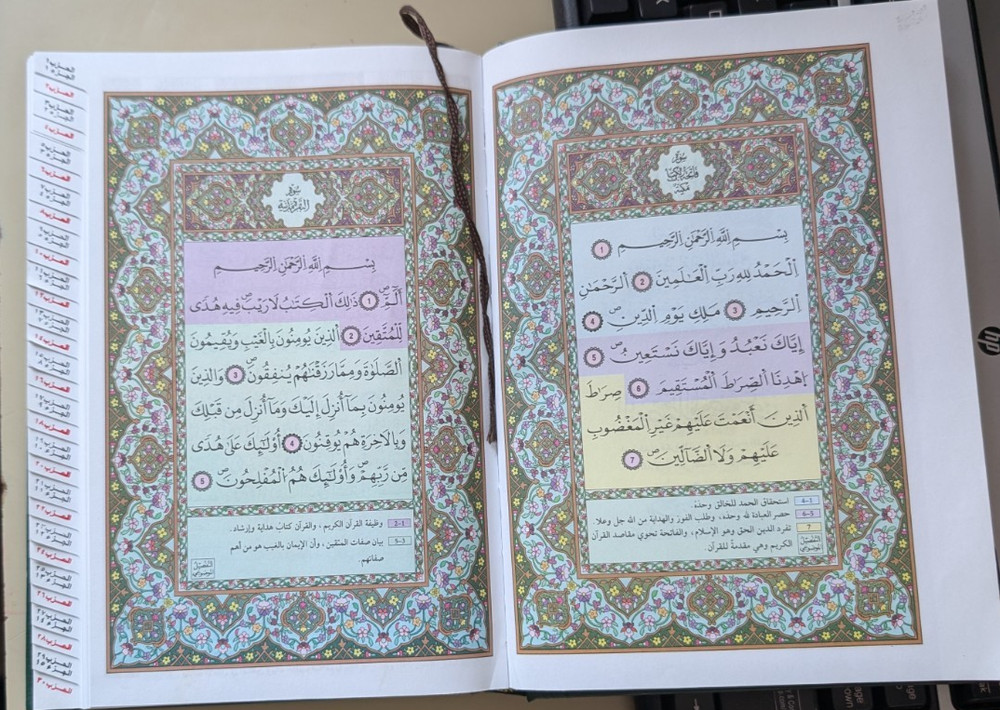 سُورَةُ
فَاتِحَةِ الْكِتَابِ
مَكِّيَّة
بِسْمِ اِ۬للَّهِ اِ۬لرَّحْمَٰنِ اِ۬لرَّحِيمِ 1
اَ۬لْحَمْدُ لِلهِ رَبِّ اِ۬لْعَٰلَمِينَ 2 اَ۬لرَّحْمَٰنِ
اِ۬لرَّحِيمِ 3 مَلِكِ يَوْمِ اِ۬لدِّينِۖ 4
إِيَّاكَ نَعْبُدُ وَإِيَّاكَ نَسْتَعِينُۖ 5
اُ۪هْدِنَا اَ۬لصِّرَٰطَ اَ۬لْمُسْتَقِيمَ 6 صِرَٰطَ
اَ۬لذِينَ أَنْعَمْتَ عَلَيْهِمْ غَيْرِ اِ۬لْمَغْضُوبِ
عَلَيْهِمْ وَلَا اَ۬لضَّآلِّينَۖ 7
4-1 استحقاق الحمد للخالق وحدَه.
6-5 حصر العبادة لله وحده، وطلب الفوز والهداية من الله جل وعلا.
7 تفرد الدين الحق وهو الإسلام، والفاتحة تحوي مقاصد القرآن
الكريم وهي مقدمة للقرآن.
التفصيل
الموضوعي
سُورَةُ
الْبَقَرَةِ مَدَنِيَّة
بِسْمِ اِ۬للَّهِ اِ۬لرَّحْمَٰنِ اِ۬لرَّحِيمِ
أَلَٓمِّٓۖ 1 ذَٰلِكَ اَ۬لْكِتَٰبُ لَا رَيْبَۖ فِيهِ هُدىٗ
لِّلْمُتَّقِينَ 2 اَ۬لذِينَ يُومِنُونَ بِالْغَيْبِ وَيُقِيمُونَ
اَ۬لصَّلَوٰةَ وَمِمَّا رَزَقْنَٰهُمْ يُنفِقُونَۖ 3 وَالذِينَ
يُومِنُونَ بِمَآ أُنزِلَ إِلَيْكَ وَمَآ أُنزِلَ مِن قَبْلِكَ
وَبِالَاخِرَةِ هُمْ يُوقِنُونَۖ 4 أُوْلَٰٓئِكَ عَلَىٰ هُدىٗ
مِّن رَّبِّهِمْۖ وَأُوْلَٰٓئِكَ هُمُ اُ۬لْمُفْلِحُونَۖ 5
2-1 وظيفة القرآن الكريم، والقرآن كتاب هداية وإرشاد.
5-3 بيان صفات المتقين، وأن الإيمان بالغيب هو من أهم
صفاتهم.
التفصيل
الموضوعي
hp